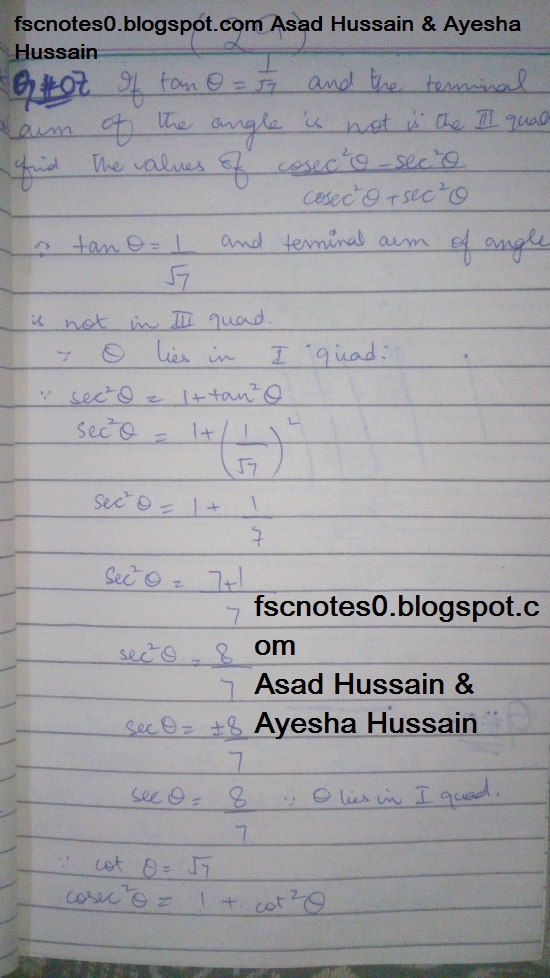 fscnotes0.blogspot.com Asad Hussain & Ayesha
Hussain
(29)
Q#07 If tan θ = 1/√7 and the terminal
arm of the angle is not is the III quad
find the values of cosec²θ - sec²θ / cosec²θ + sec²θ
∵ tan θ = 1/√7 and terminal arm of angle
is not in III quad.
∴ θ lies in I quad.
∵ sec²θ = 1 + tan²θ
sec²θ = 1 + (1/√7)²
sec²θ = 1 + 1/7
sec²θ = 7+1/7
sec²θ = 8/7
secθ = ±8/7
secθ = 8/7 ∵ θ lies in I quad.
∵ cot θ = √7
cosec²θ = 1 + cot²θ
fscnotes0.blogspot.c
om
Asad Hussain &
Ayesha Hussain